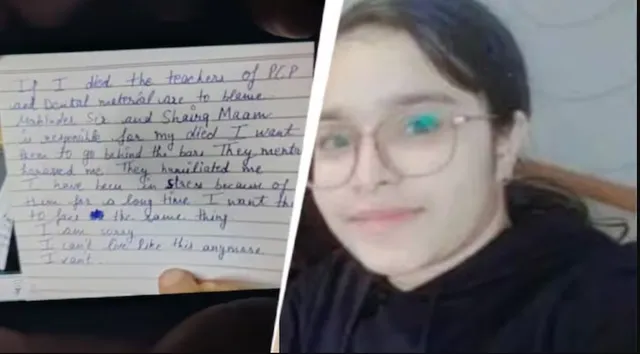 If I died the teachers of PCP
and Dental material are to blame.
Mahinder Sir and Shairg Maam
is responible for my died I want
them to go behind the bars They menta
harassed me They humiliated me
I have been in stress because of
them for a long time I want th
to face the same thing
I am sorry
I can't live like this anymore
I can't